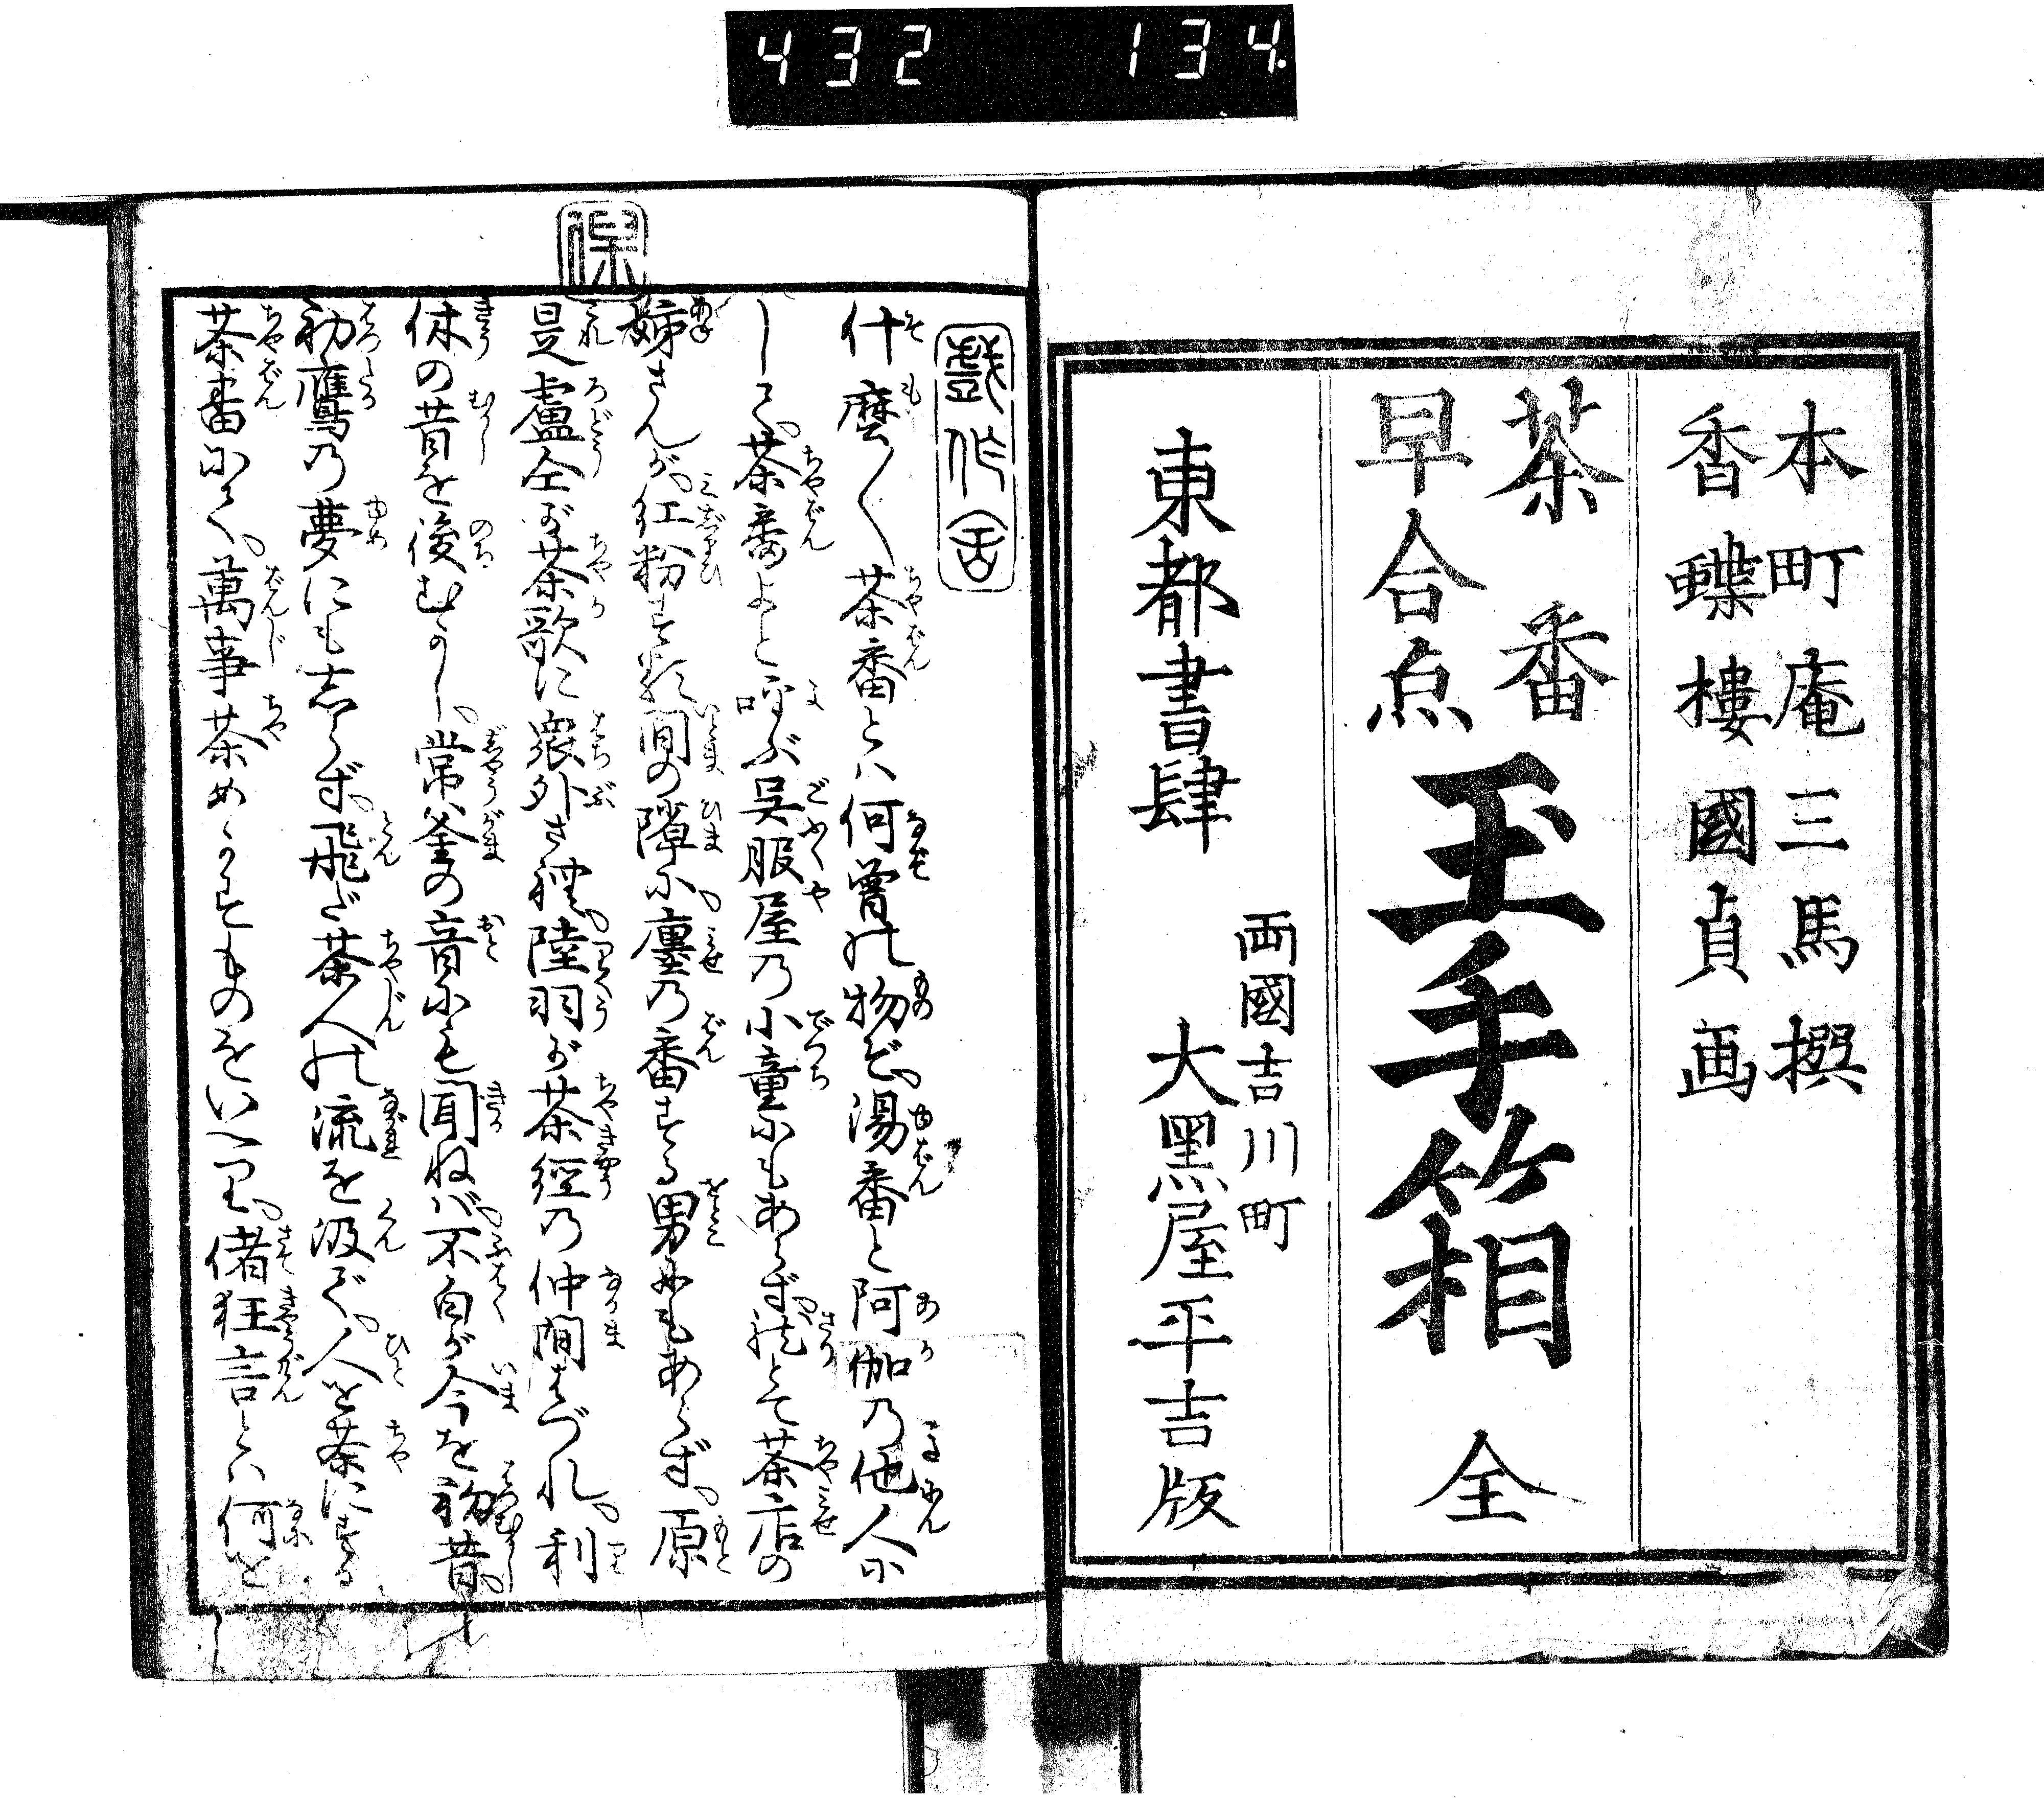 432 134.
本町庵三馬撰
香蝶樓國貞画
茶番
早合点
玉手箱 全
東都書肆
両國吉川町
大黒屋平吉版
戯作舎
什麼〱茶番とハ何曾の物ぞ湯番と阿伽の他人に
して、茶番よと呼ぶ呉服屋の小童にもあらず、然とて茶店の
姉さんが、紅粉する間の隙に、廛の番する男にもあらず、原
是盧仝が茶歌に眾外され、陸羽が茶經の仲間はづれ、利
休の昔を後むかし、常釜の音にも聞ねバ、不白が今を初昔、
初鷹の夢にも志らず、飛だ茶人の流を汲で、人を茶にする
茶番にて、萬事茶めかすものをいへり、偖狂言とハ何を